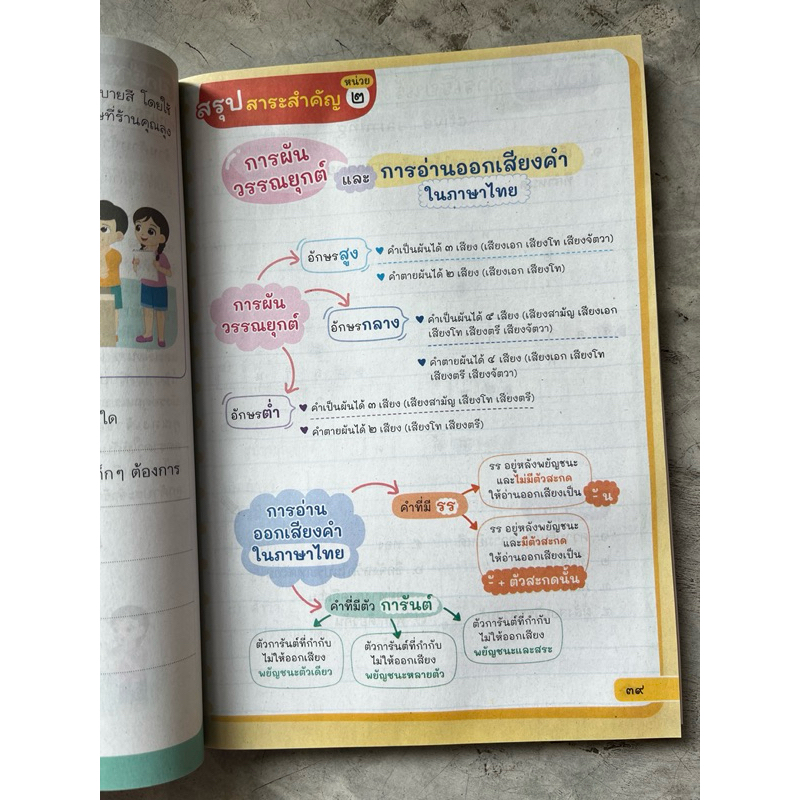 บายสี โดยใช้
ษที่ร้านคุณลุง
ใด
ด็กๆ ต้องการ
สรุป สาระสำคัญ หน่วย ๒
การผัน
วรรณยุกต์
และ
การอ่านออกเสียงคำ
ในภาษาไทย
อักษรสูง
คำเป็นผันได้ ๓ เสียง (เสียงเอก เสียงโท เสียงจัตวา)
คำตายผันได้ ๒ เสียง (เสียงเอก เสียงโท)
การผัน
วรรณยุกต์
อักษรกลาง
คำเป็นผันได้ ๕ เสียง (เสียงสามัญ เสียงเอก
เสียงโท เสียงตรี เสียงจัตวา)
คำตายผันได้ ๔ เสียง (เสียงเอก เสียงโท
เสียงตรี เสียงจัตวา)
อักษรต่ำ
คำเป็นผันได้ ๓ เสียง (เสียงสามัญ เสียงโท เสียงตรี)
คำตายผันได้ ๒ เสียง (เสียงโท เสียงตรี)
การอ่าน
ออกเสียงคำ
ในภาษาไทย
คำที่มี รร
รร อยู่หลังพยัญชนะ
และไม่มีตัวสะกด
ให้อ่านออกเสียงเป็น
-ั น
รร อยู่หลังพยัญชนะ
และมีตัวสะกด
ให้อ่านออกเสียงเป็น
-ั + ตัวสะกดนั้น
คำที่มีตัว การันต์
ตัวการันต์ที่กำกับ
ไม่ให้ออกเสียง
พยัญชนะตัวเดียว
ตัวการันต์ที่กำกับ
ไม่ให้ออกเสียง
พยัญชนะหลายตัว
ตัวการันต์ที่กำกับ
ไม่ให้ออกเสียง
พยัญชนะและสระ
๓๙